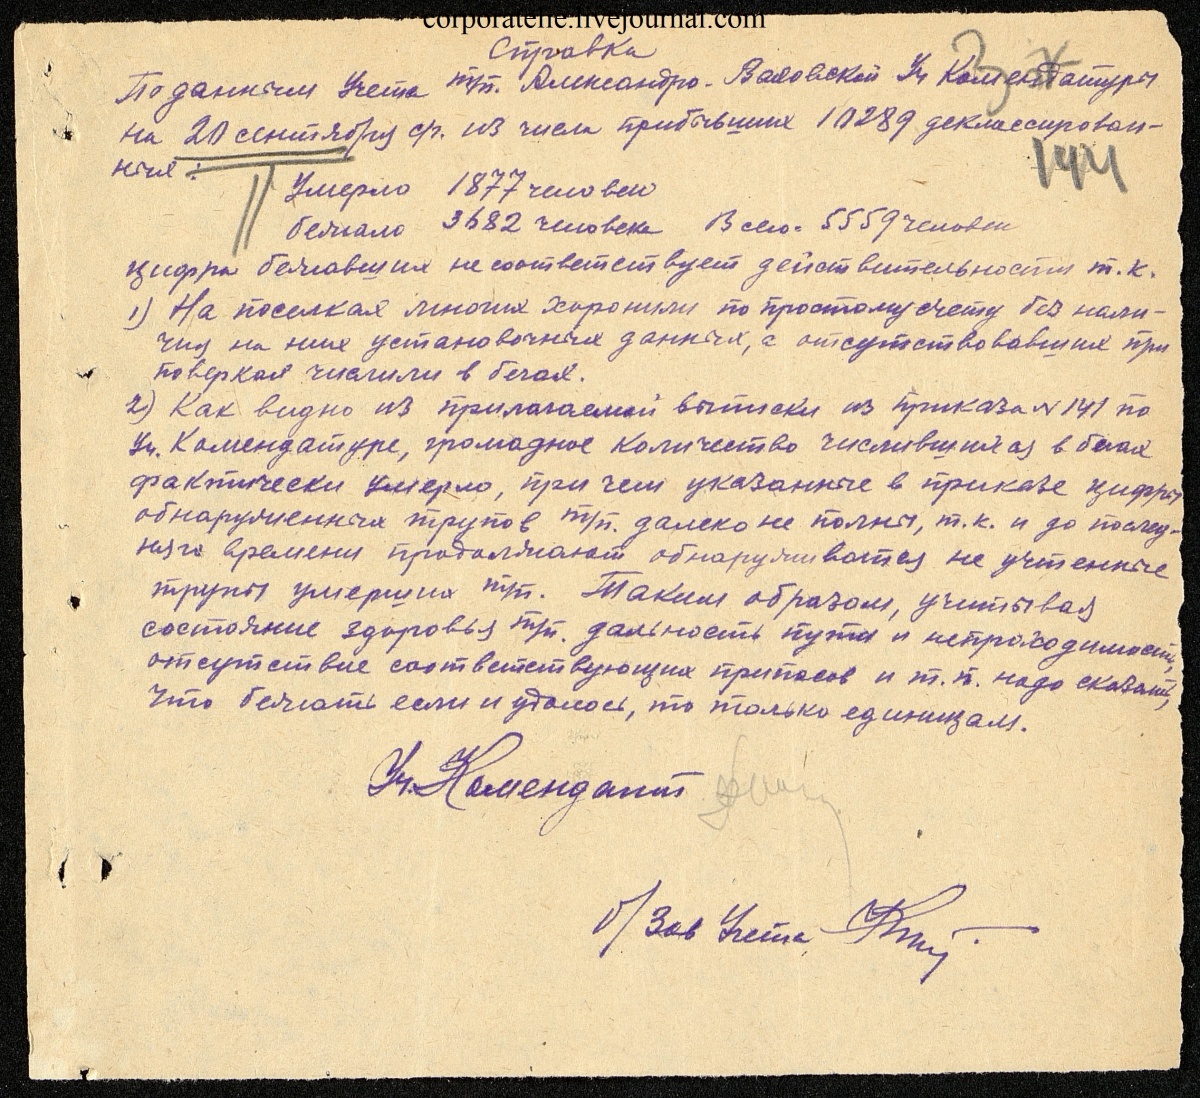 corporatelie.livejournal.com
Справка
По данным Учета т/п. Александро-Ваховской Уч Комендатуры
на 20 сентября с/г. из числа прибывших 10289 деклассирован-
ных:
144
Умерло 1877 человек
бежало 3682 человека Всего. 5559 человек
цифра бежавших несоответствует действительности т.к.
1) На поселках многих хоронили по простому счету без нали-
чия на них установочных данных, а отсутствовавших при
поверках числили в бегах.
2) Как видно из прилагаемой выписки из приказа № 141 по
Уч. Комендатуре, громадное количество числившихся в бегах
фактически умерло, при чем указанные в приказе цифры
обнаруженных трупов т/п. далеко не полны, т.к. и до послед-
няго времени продолжают обнаруживатся не учтенные
трупы умерших т/п. Таким образом, учитывая
состояние здоровья т/п. дальность пути и непроходимость,
отсутствие соответствующих припасов и т.п. надо сказать,
что бежать если и удалось, то только единицам.
Уч. Комендант
б/Зав Учета